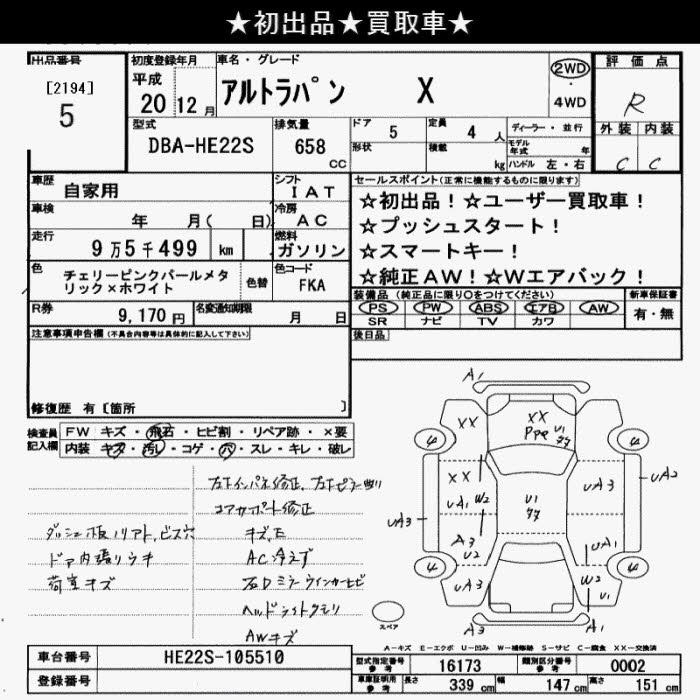 ★初出品★買取車★
出品番号
[2194]
5
初度登録年月
平成
20 12 月
車名・グレード
アルトラパン X
2WD
・
4WD
評価点
R
外装 内装
C C
型式
DBA-HE22S
排気量
658 CC
ドア 5
形状
定員 4 人
積載 kg
ディーラー・並行
モデル年式 年
ハンドル 左・右
車歴 自家用
シフト IAT
車検 年 月( 日)
冷房 AC
走行 9万5千499 km
燃料 ガソリン
色 チェリーピンクパールメタ
リック×ホワイト
色替
色コード FKA
R券 9,170 円
名変通知期限 月 日
セールスポイント(正常に機能するものに限ります)
☆初出品!☆ユーザー買取車!
☆プッシュスタート!
☆スマートキー!
☆純正AW!☆Wエアバック!
装備品 (純正品に限り○をつけてください)
PS PW ABS エアB AW
SR ナビ TV カワ
新車保証書
有・無
後日品
注意事項申告欄(不具合内容等は具体的に記入して下さい)
修復歴 有〔箇所 〕
検査員
記入欄
FW キズ・飛石・ヒビ割・リペア跡・×要
内装 キズ・汚レ・コゲ・穴・スレ・キレ・破レ
左下インパネ修正、左下ピラー凹
コアサポート修正
ダッシュ板ソリアト、ビス穴
キズ、E
ドア内張りウキ
AC冷えず
荷室キズ
右Dミラーウインカーヒビ
ヘッドライトクモリ
AWキズ
A1
XX
XX
PPE
U1
XX
UA1
W2
U1
UA3
UA2
UA3
A3
U2
UA1
W2
UA3
U1
A3
A1
スペア
A-キズ E-エクボ U-凹み W-補修跡 S-サビ C-腐食 XX-交換済
車台番号 HE22S-105510
登録番号
型式指定番号
参考
16173
類別区分番号
参考
0002
車庫証明用
参考
長さ 339 cm 幅 147 cm 高さ 151 cm